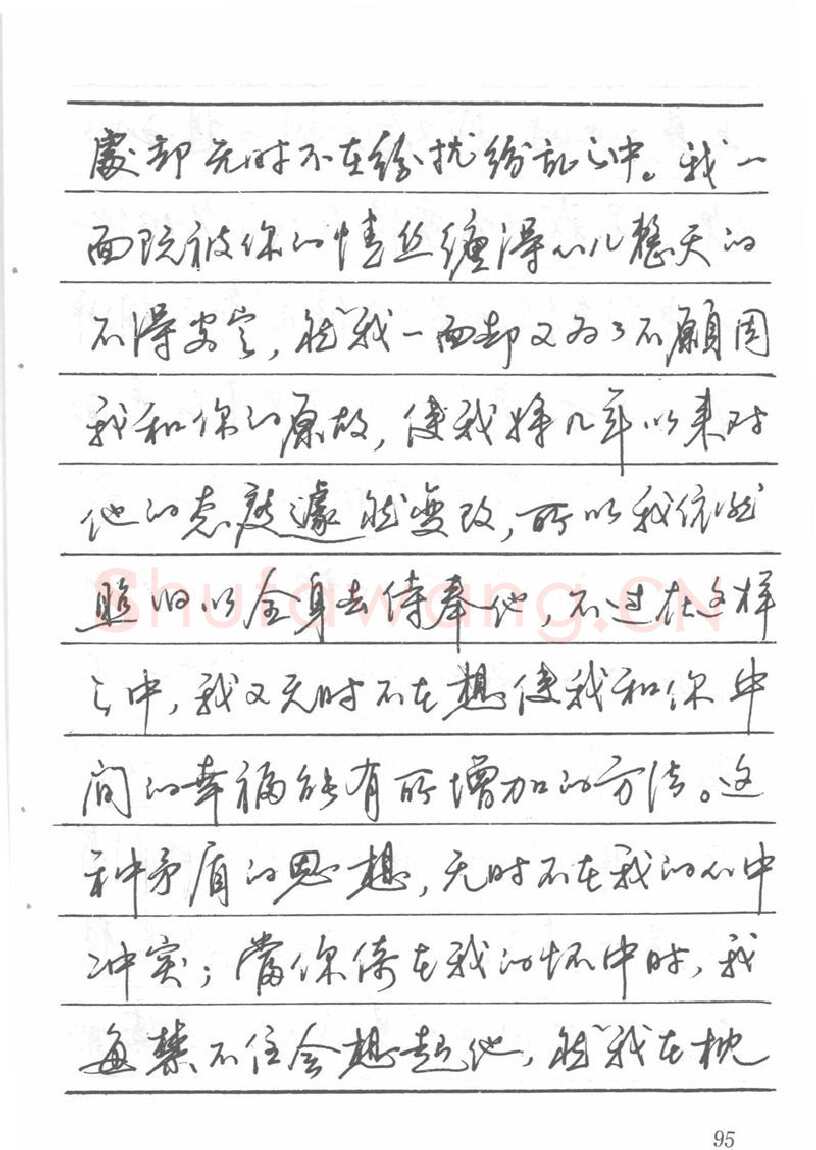 處却无时不在纷扰纷乱之中。我一
面既被你的情丝缠得心儿整天的
不得安定，然我一面却又为了不願因
我和你的原故，使我将几年以来对
他的态度遽然变改，所以我依然
照旧以全身去侍奉他，不过在这样
之中，我又无时不在想使我和你中
间的幸福能有所增加的方法。这
种矛盾的思想，无时不在我的心中
冲突；當你倚在我的怀中时，我
每禁不住会想起他，然我在枕
Shufawang.CN
95